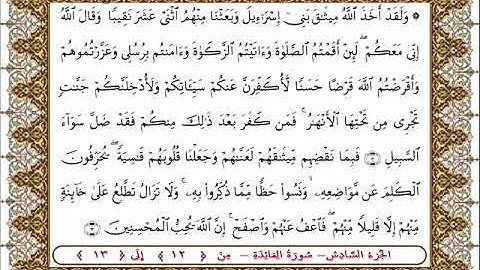 ۞ وَلَقَدْ أَخَذَ ٱللَّهُ مِيثَٰقَ بَنِىٓ إِسْرَٰٓءِيلَ وَبَعَثْنَا مِنْهُمُ ٱثْنَىْ عَشَرَ نَقِيبًا ۖ وَقَالَ ٱللَّهُ
إِنِّى مَعَكُمْ ۖ لَئِنْ أَقَمْتُمُ ٱلصَّلَوٰةَ وَءَاتَيْتُمُ ٱلزَّكَوٰةَ وَءَامَنتُم بِرُسُلِى وَعَزَّرْتُمُوهُمْ
وَأَقْرَضْتُمُ ٱللَّهَ قَرْضًا حَسَنًا لَّأُكَفِّرَنَّ عَنكُمْ سَيِّـَٔاتِكُمْ وَلَأُدْخِلَنَّكُمْ جَنَّٰتٍ
تَجْرِى مِن تَحْتِهَا ٱلْأَنْهَٰرُ ۚ فَمَن كَفَرَ بَعْدَ ذَٰلِكَ مِنكُمْ فَقَدْ ضَلَّ سَوَآءَ
ٱلسَّبِيلِ ١٢ فَبِمَا نَقْضِهِم مِّيثَٰقَهُمْ لَعَنَّٰهُمْ وَجَعَلْنَا قُلُوبَهُمْ قَٰسِيَةً ۖ يُحَرِّفُونَ
ٱلْكَلِمَ عَن مَّوَاضِعِهِۦ ۙ وَنَسُوا۟ حَظًّا مِّمَّا ذُكِّرُوا۟ بِهِۦ ۚ وَلَا تَزَالُ تَطَّلِعُ عَلَىٰ خَآئِنَةٍ
مِّنْهُمْ إِلَّا قَلِيلًا مِّنْهُمْ ۖ فَٱعْفُ عَنْهُمْ وَٱصْفَحْ ۚ إِنَّ ٱللَّهَ يُحِبُّ ٱلْمُحْسِنِينَ ١٣
الجزء السادس – سورة المائدة – من ﴿ ١٢ ﴾ إلى ﴿ ١٣ ﴾